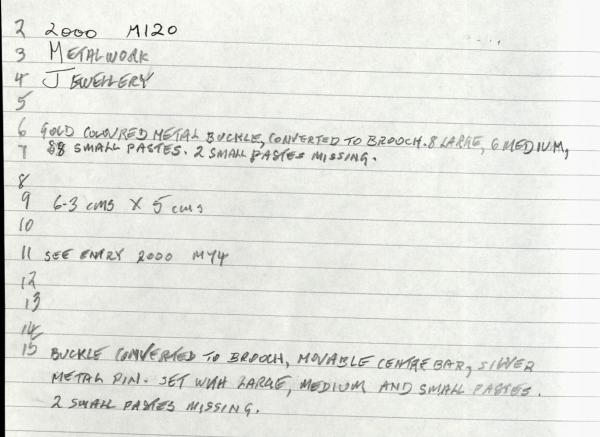 2 2000 M120
3 METALWORK
4 JEWELLERY
5
6 GOLD COLOURED METAL BUCKLE, CONVERTED TO BROOCH. 8 LARGE, 6 MEDIUM,
7 88 SMALL PASTES. 2 SMALL PASTES MISSING.
8
9 6.3 cms X 5 cms
10
11 SEE ENTRY 2000 M74
12
13
14
15 BUCKLE CONVERTED TO BROOCH, MOVABLE CENTRE BAR, SILVER
METAL PIN. SET WITH LARGE, MEDIUM AND SMALL PASTES.
2 SMALL PASTES MISSING.